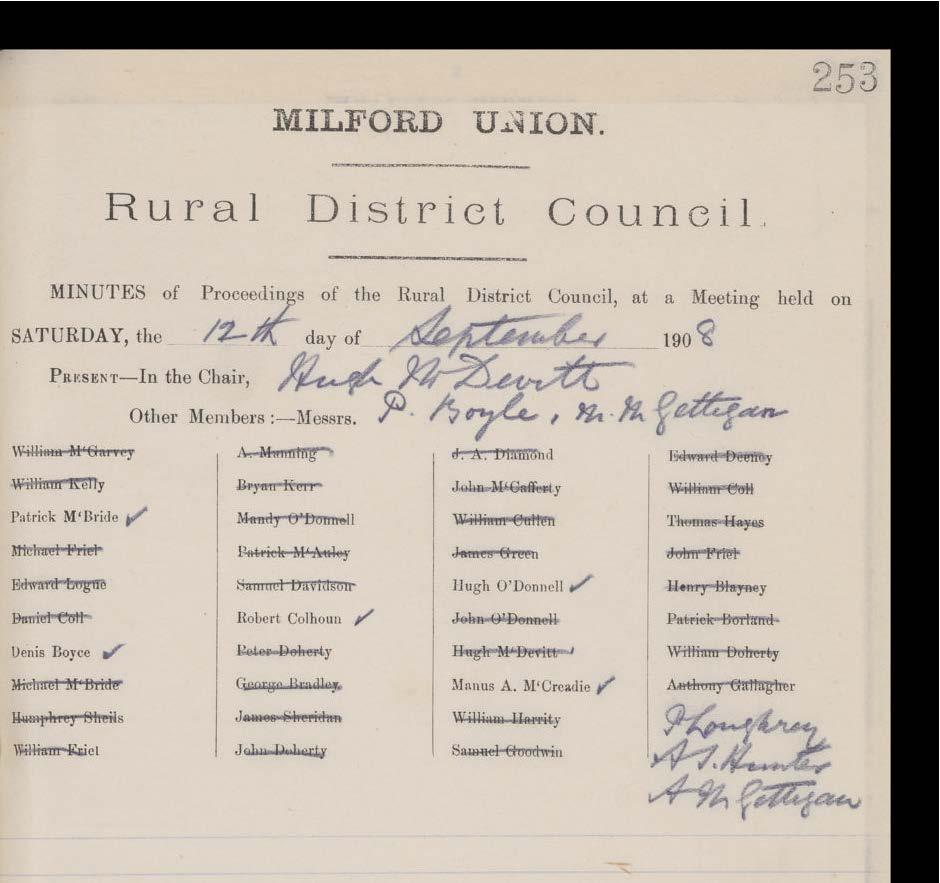 253
MILFORD UNION.
Rural District Council.
MINUTES of Proceedings of the Rural District Council, at a Meeting held on
SATURDAY, the 12th day of September 1908
PRESENT—In the Chair, Hugh McDevitt
Other Members :—Messrs. P. Boyle, M. McGettigan
William M‘Garvey
William Kelly
Patrick M‘Bride ✓
Michael Friel
Edward Logue
Daniel Coll
Denis Boyce ✓
Michael M‘Bride
Humphrey Sheils
William Friel
A. Manning
Bryan Kerr
Mandy O’Donnell
Patrick M‘Auley
Samuel Davidson
Robert Colhoun ✓
Peter Doherty
George Bradley
James Sheridan
John Doherty
J. A. Diamond
John M‘Cafferty
William Cullen
James Green
Hugh O’Donnell ✓
John O’Donnell
Hugh M‘Devitt
Manus A. M‘Creadie ✓
William Harrity
Samuel Goodwin
Edward Deeney
William Coll
Thomas Hayes
John Friel
Henry Blayney
Patrick Borland
William Doherty
Anthony Gallagher
P Loughrey
A S. Hunter
A McGettigan